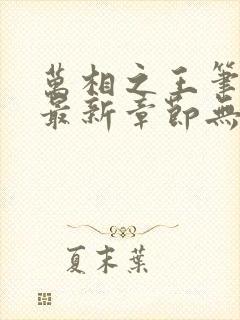 萬相之王筆
最新章節無
夏末葉